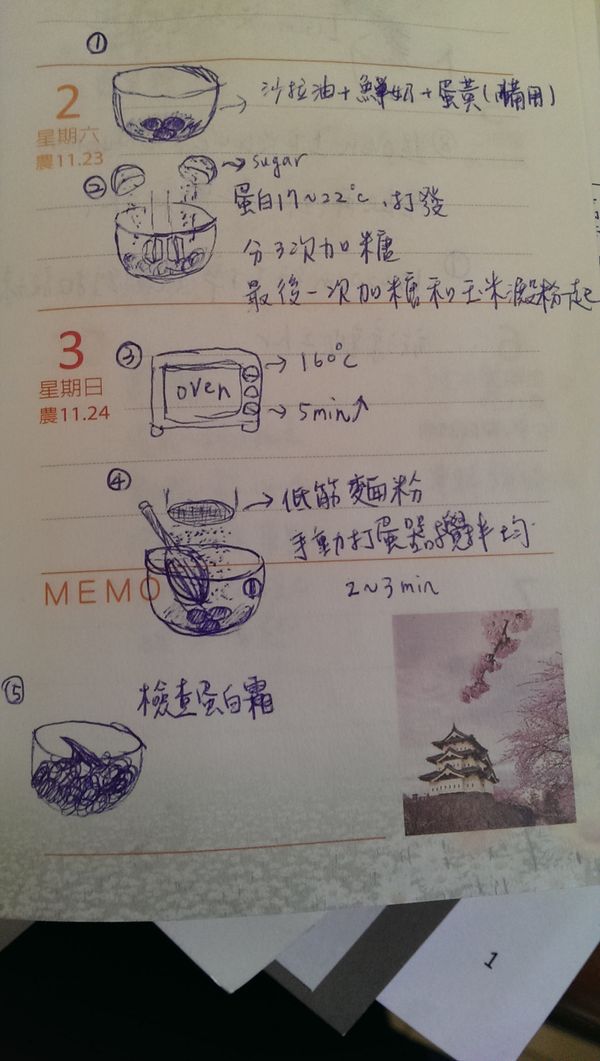 ①
2
星期六
農11.23
沙拉油+鮮奶+蛋黃(備用)
②
sugar
蛋白17~22°c、打發
分3次加糖
最後一次加糖和玉米澱粉一起
3
星期日
農11.24
③
oven
160°c
5min↑
④
低筋麵粉
手動打蛋器攪拌均
2~3min
①
MEMO
⑤
檢查蛋白霜
1